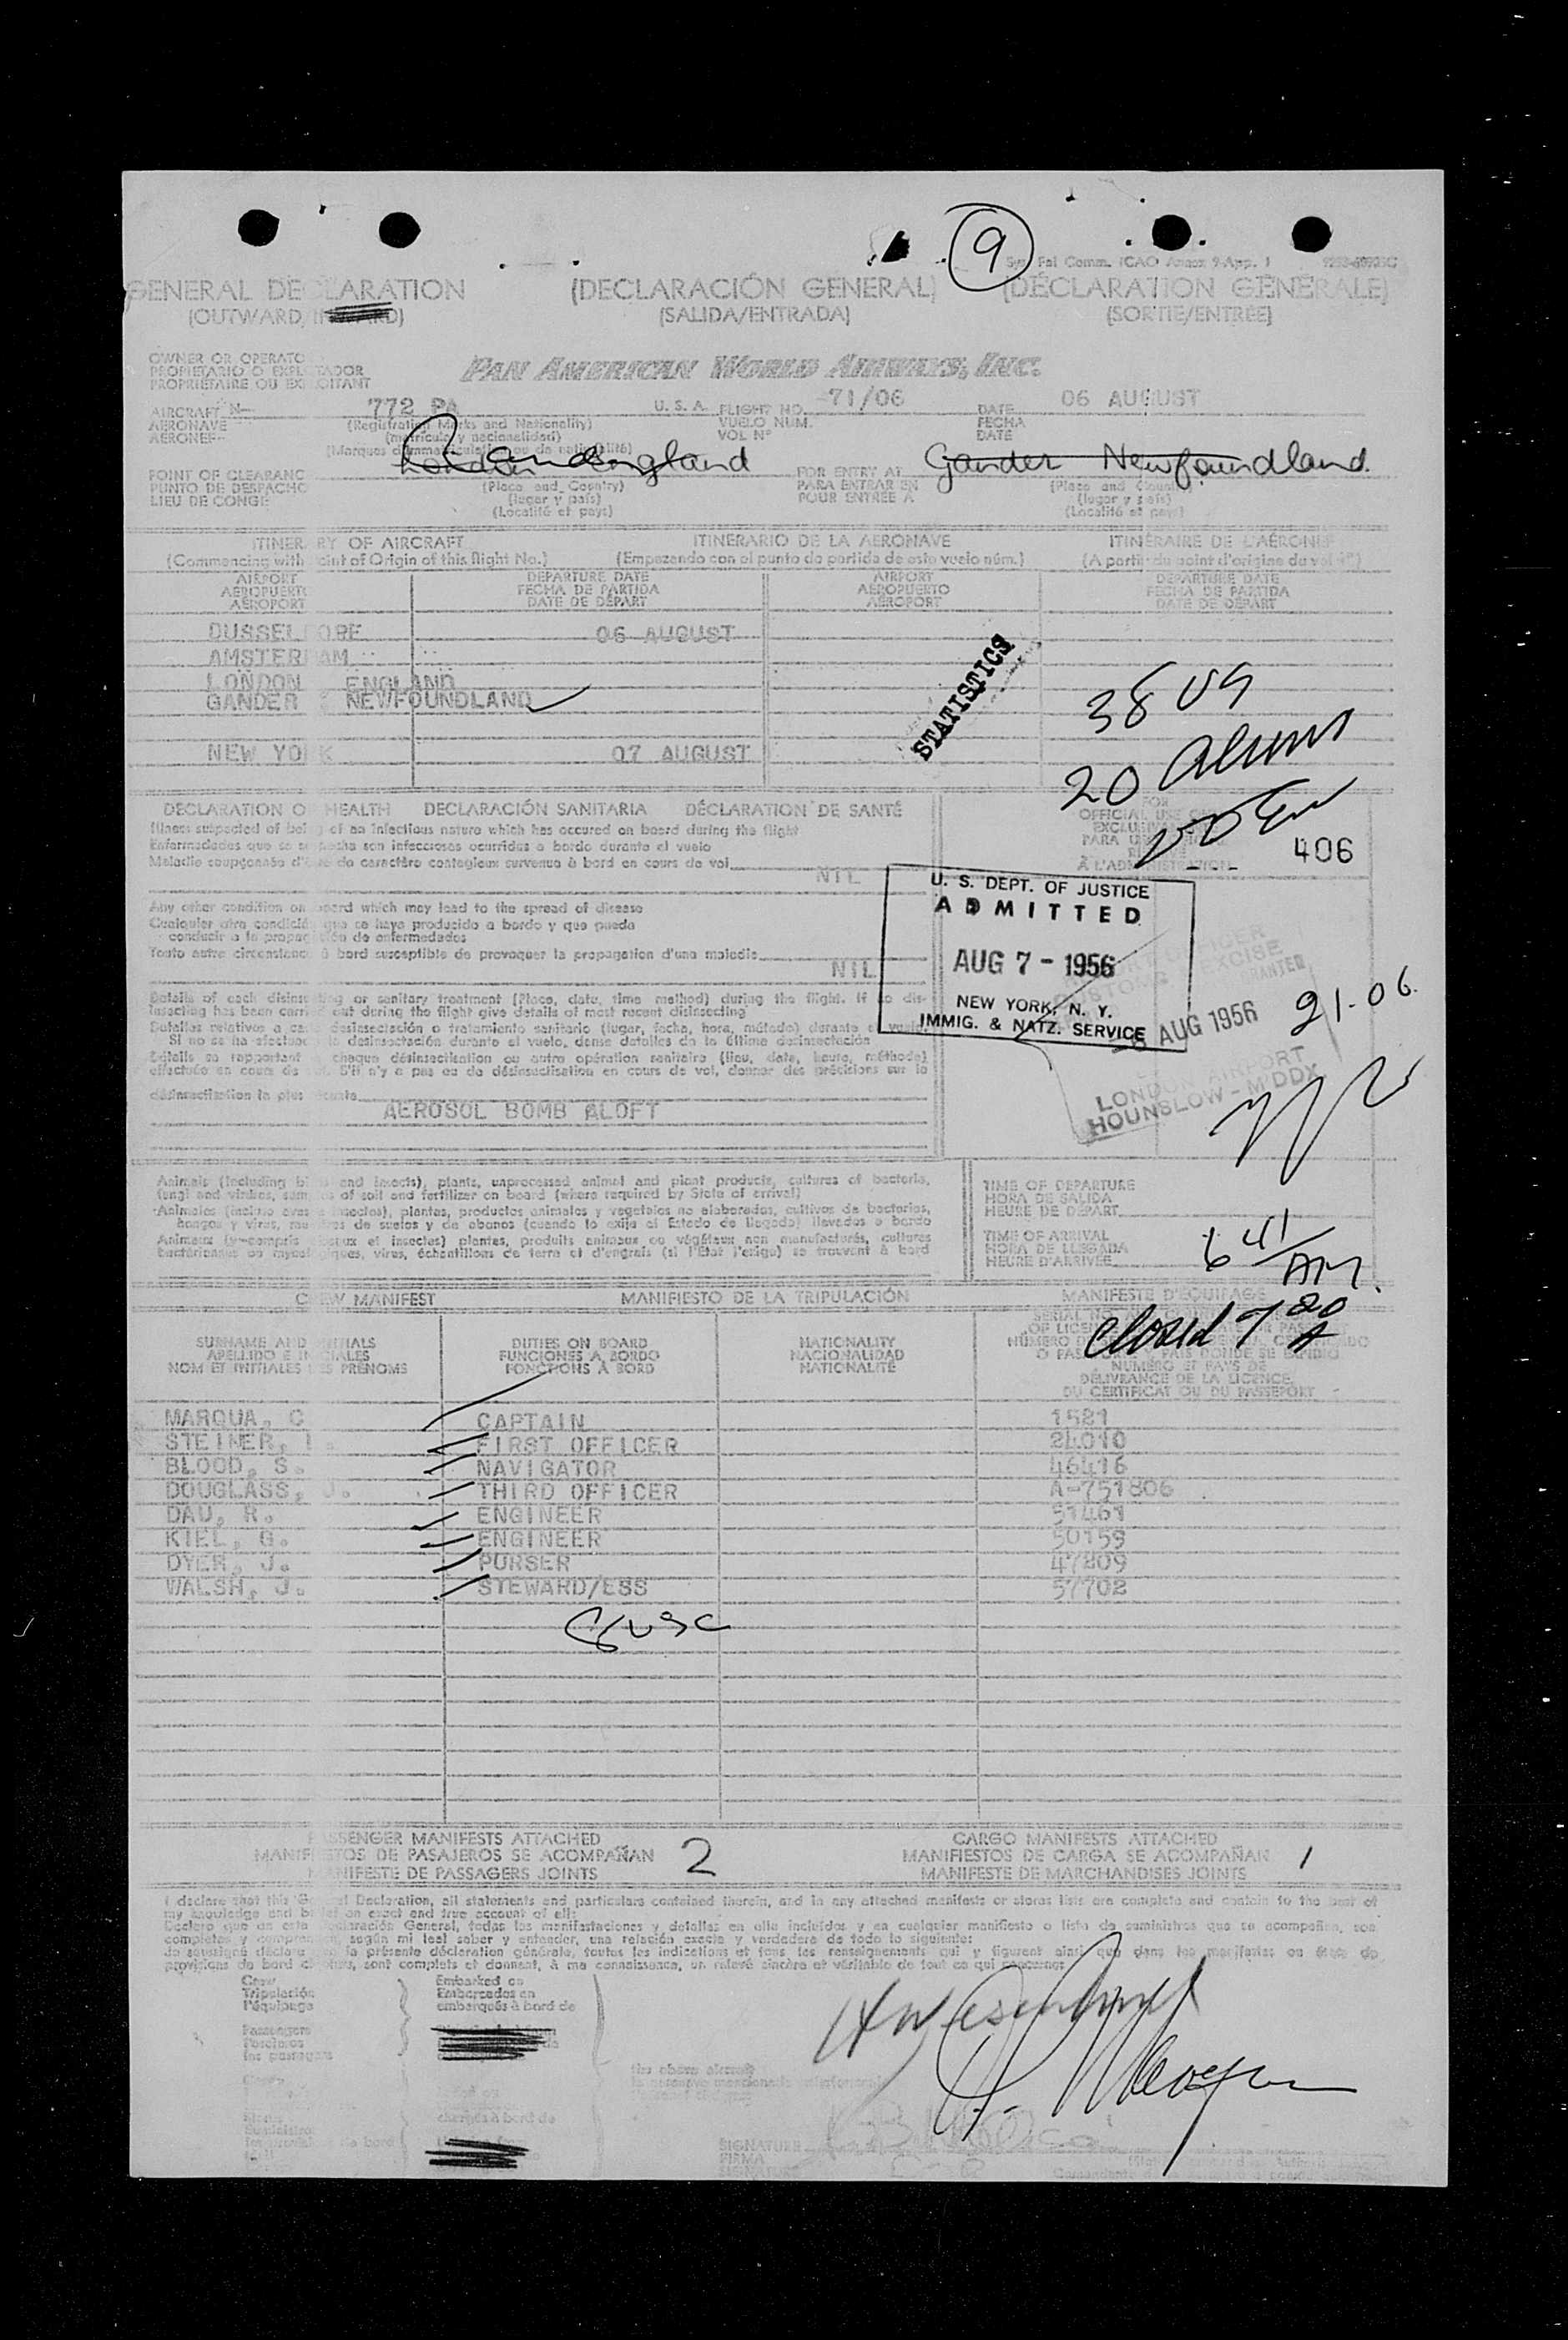 9
Fal Comm. ICAO Annex 9-App. 1
GENERAL DECLARATION (DECLARACIÓN GENERAL) (DÉCLARATION GÉNÉRALE)
(OUTWARD, (SALIDA/ENTRADA) (SORTIE/ENTRÉE)
OWNER OR OPERATO
PROPIETARIO O EXPLOTADOR
PROPRIÉTAIRE OU EXPLOITANT
PAN AMERICAN WORLD AIRWAYS, INC.
AIRCRAFT N— 772 PA U. S. A. FLIGHT NO. 71/06 DATE 06 AUGUST
AERONAVE (Registration Marks and Nationality) VUELO NUM. FECHA
AÉRONEF— (matrícula y nacionalidad) VOL N° DATE
POINT OF CLEARANC England FOR ENTRY AT Gander Newfoundland
PUNTO DE DESPACHO (Place and Country) PARA ENTRAR EN (Place and Country)
LIEU DE CONGÉ (lugar y país) POUR ENTRÉE À (lugar y país)
(Localité et pays) (Localité et pays)
ITINERARY OF AIRCRAFT ITINERARIO DE LA AERONAVE ITINÉRAIRE DE L'AÉRONEF
(Commencing with Point of Origin of this flight No.) (Empezando con el punto de partida de este vuelo núm.) (A partir du point d'origine du vol N°)
AIRPORT DEPARTURE DATE AIRPORT DEPARTURE DATE
AEROPUERTO FECHA DE PARTIDA AEROPUERTO FECHA DE PARTIDA
AÉROPORT DATE DE DÉPART AÉROPORT DATE DE DÉPART
DUSSELDORF 06 AUGUST
AMSTERDAM
LONDON ENGLAND
GANDER NEWFOUNDLAND
STATISTICS
38 US
20 aliens
NEW YORK 07 AUGUST
DECLARATION OF HEALTH DECLARACIÓN SANITARIA DÉCLARATION DE SANTÉ
Illness suspected of being of an infectious nature which has occured on board during the flight
Enfermedades que se sospecha son infecciosas ocurridas a bordo durante el vuelo
Maladie soupçonnée d'être de caractère contagieux survenue à bord en cours de vol NIL
406
Any other condition on board which may lead to the spread of disease
Cualquier otra condición que se haya producido a bordo y que pueda
conducir a la propagación de enfermedades
Toute autre circonstance à bord susceptible de provoquer la propagation d'une maladie NIL
U. S. DEPT. OF JUSTICE
ADMITTED
AUG 7 - 1956
NEW YORK, N. Y.
IMMIG. & NATZ. SERVICE
AUG 1956
21.06.
LONDON AIRPORT
HOUNSLOW - MIDDX.
Details of each disinsecting or sanitary treatment (Place, date, time method) during the flight. If no dis-
insecting has been carried out during the flight give details of most recent disinsecting
Detalles relativos a cada desinsectación o tratamiento sanitario (lugar, fecha, hora, método) durante el vuelo.
Si no se ha efectuado la desinsectación durante el vuelo, dense detalles de la última desinsectación
Détails se rapportant à chaque désinsectisation ou autre opération sanitaire (lieu, date, heure, méthode)
effectuée en cours de vol. S'il n'y a pas eu de désinsectisation en cours de vol, donner des précisions sur la
désinsectisation la plus récente
AEROSOL BOMB ALOFT
Animals (including birds and insects), plants, unprocessed animal and plant products, cultures of bacteria,
fungi and viruses, samples of soil and fertilizer on board (where required by State of arrival)
Animales (incluso aves e insectos), plantas, productos animales y vegetales no elaborados, cultivos de bacterias,
hongos y virus, muestras de suelos y de abonos (cuando lo exija el Estado de llegada) llevados a bordo
Animaux (y-compris oiseaux et insectes) plantes, produits animaux ou végétaux non manufacturés, cultures
bactériennes ou mycologiques, virus, échantillons de terre et d'engrais (si l'État l'exige) se trouvant à bord
TIME OF DEPARTURE
HORA DE SALIDA
HEURE DE DÉPART
TIME OF ARRIVAL
HORA DE LLEGADA
HEURE D'ARRIVÉE 6 41/AM.
closed 7 20 A
CREW MANIFEST MANIFIESTO DE LA TRIPULACIÓN MANIFESTE D'ÉQUIPAGE
SURNAME AND INITIALS DUTIES ON BOARD NATIONALITY
APELLIDO E INICIALES FUNCIONES A BORDO NACIONALIDAD
NOM ET INITIALES DES PRÉNOMS FONCTIONS À BORD NATIONALITÉ
NUMÉRO ET PAYS DE
DÉLIVRANCE DE LA LICENCE,
DU CERTIFICAT OU DU PASSEPORT
MARQUA, C CAPTAIN 1521
STEINER, FIRST OFFICER 24010
BLOOD, S. NAVIGATOR 46416
DOUGLASS, J. THIRD OFFICER A-751806
DAU, R. ENGINEER 51461
KIEL, G. ENGINEER 50159
DYER, J. PURSER 47809
WALSH, J. STEWARD/ESS 57702
8 USC
PASSENGER MANIFESTS ATTACHED CARGO MANIFESTS ATTACHED
MANIFIESTOS DE PASAJEROS SE ACOMPAÑAN 2 MANIFIESTOS DE CARGA SE ACOMPAÑAN 1
MANIFESTE DE PASSAGERS JOINTS MANIFESTE DE MARCHANDISES JOINTS
I declare that this General Declaration, all statements and particulars contained therein, and in any attached manifests or stores lists are complete and contain to the best of
my knowledge and belief an exact and true account of all:
Declaro que en esta Declaración General, todas las manifestaciones y detalles en ella incluidos y en cualquier manifiesto o lista de suministros que se acompañen, son
completas y comprenden, según mi leal saber y entender, una relación exacta y verdadera de todo lo siguiente:
Je soussigné déclare que la présente déclaration générale, toutes les indications et tous les renseignements qui y figurent ainsi que dans les manifestes ou états de
provisions de bord ci-joints, sont complets et donnent, à ma connaissance, un relevé sincère et véritable de tout ce qui concerne:
Crew Embarked on
Tripulación Embarcados en
l'équipage embarqués à bord de
Passengers
Pasajeros
les passagers
the above aircraft
chargés à bord de
SIGNATURE
FIRMA